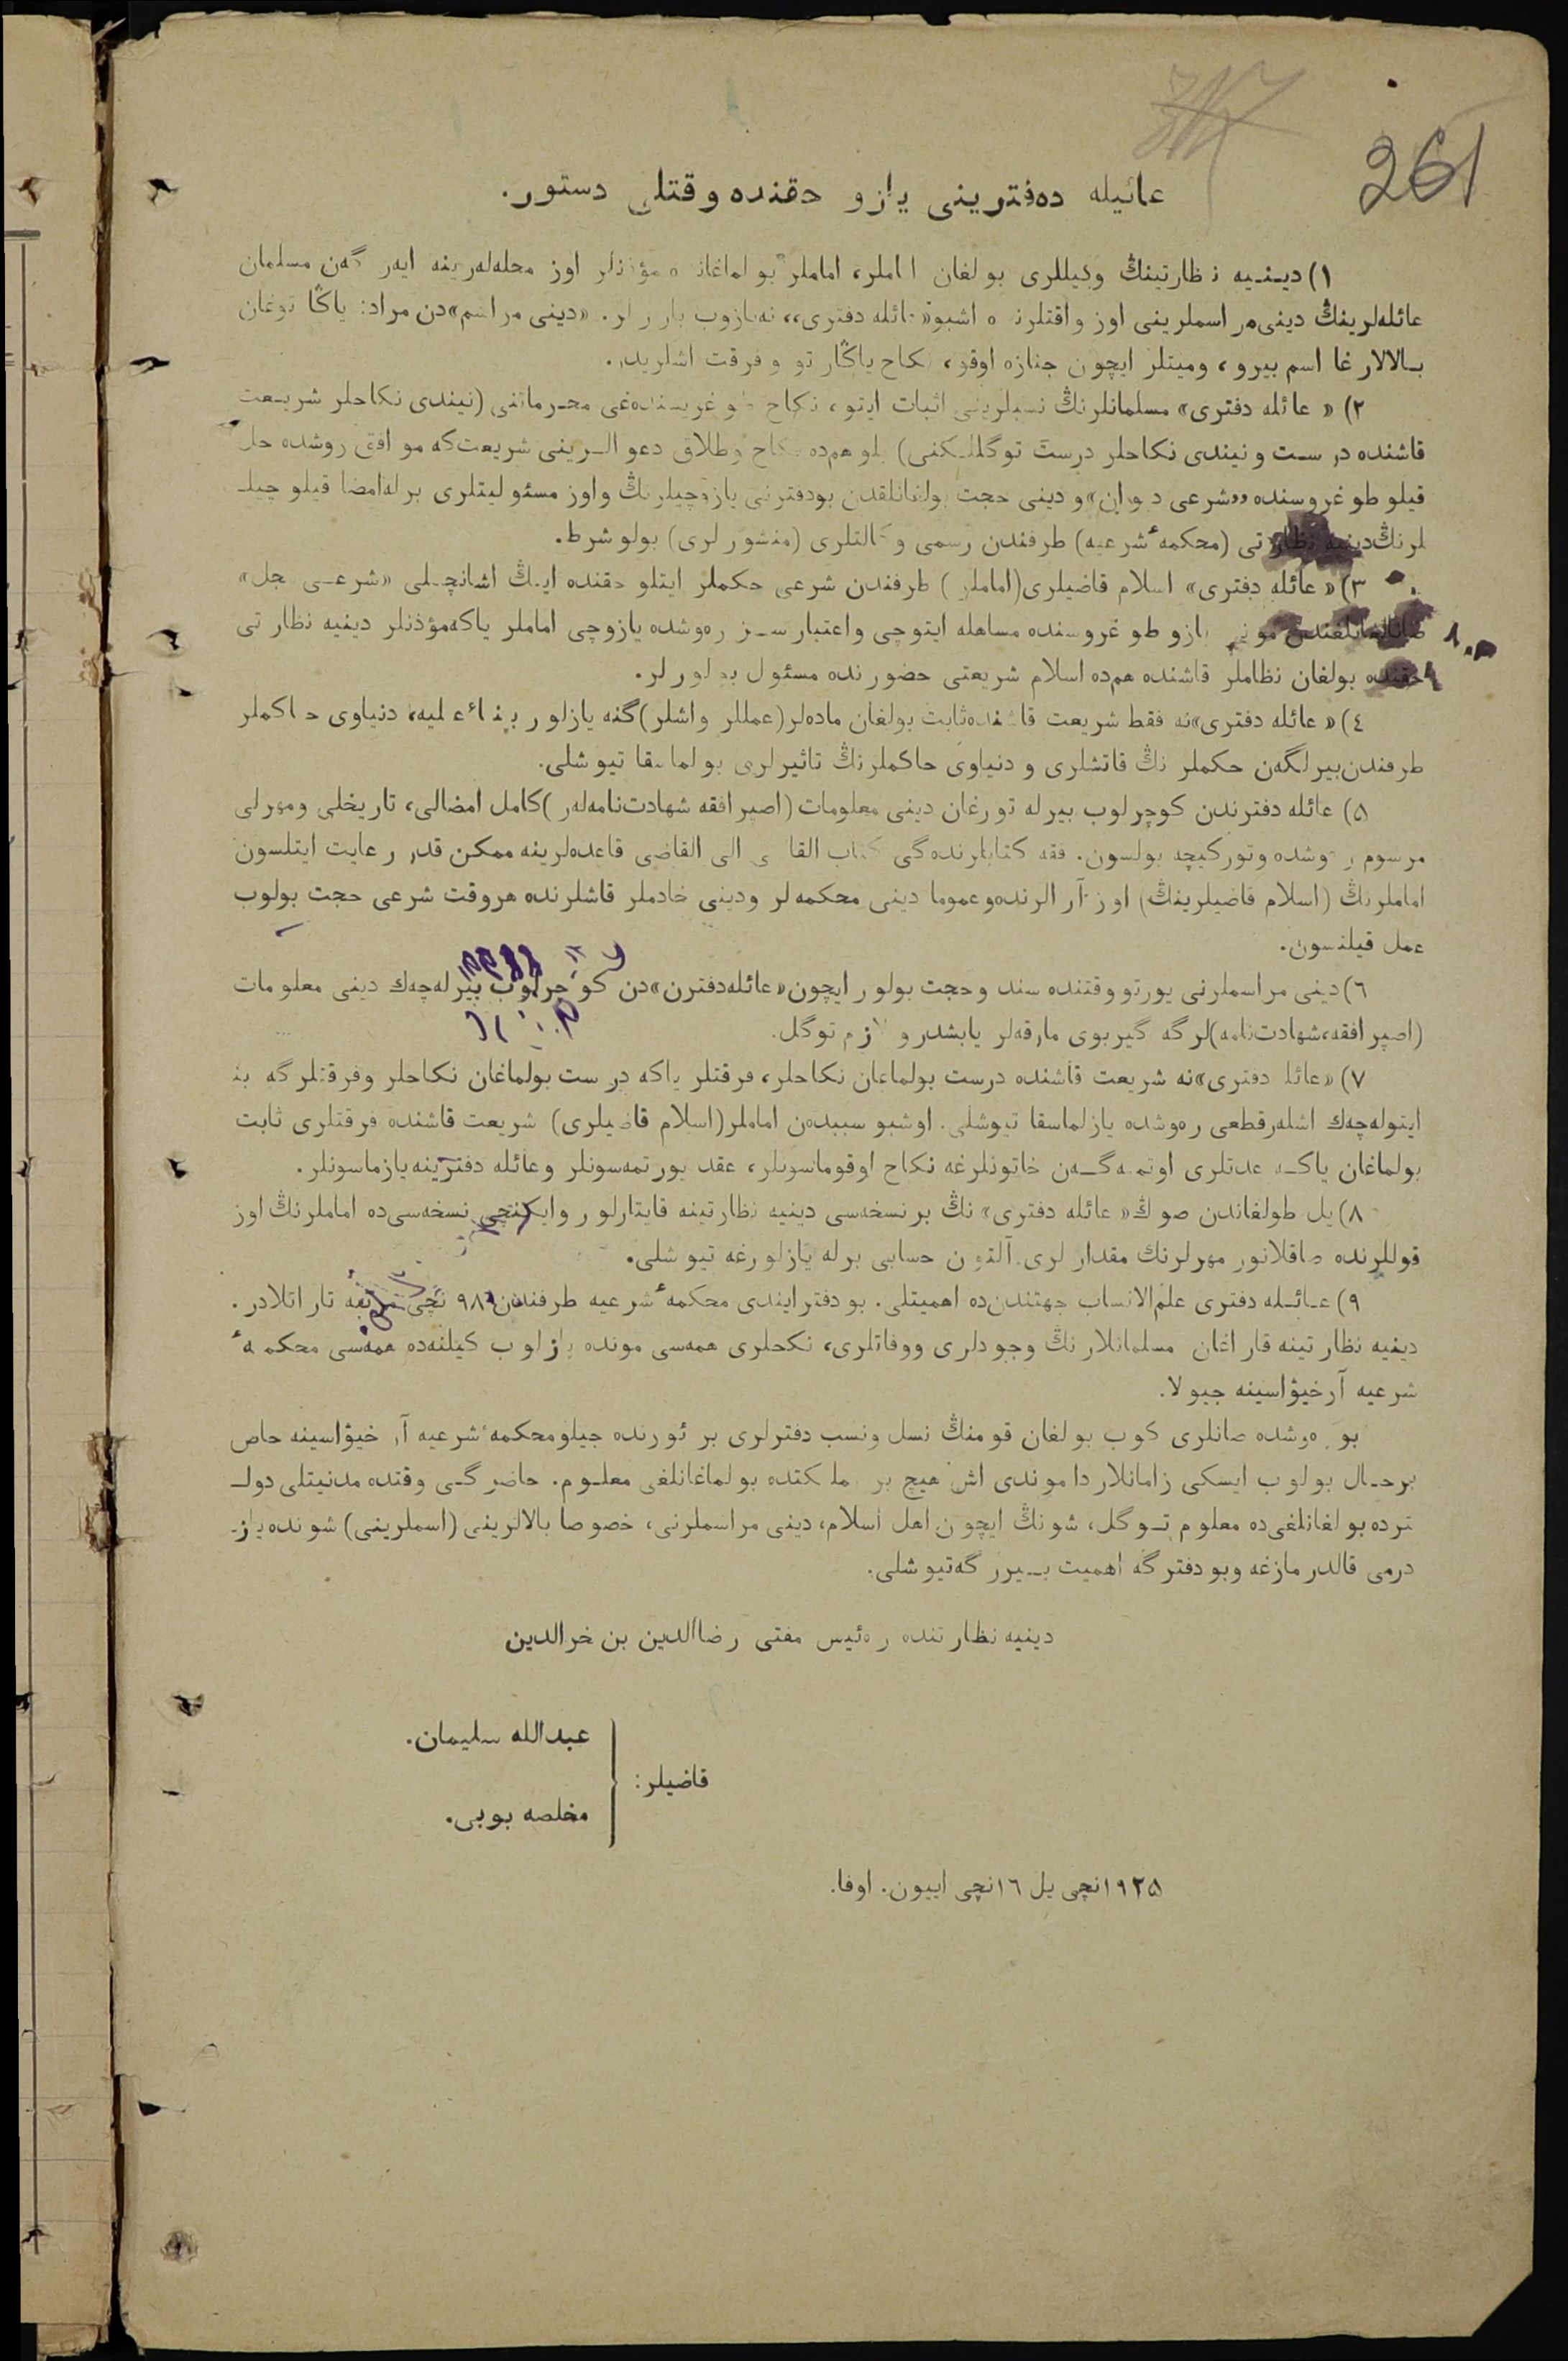 261
عائیله دەفترینی یازو حقنده وقتلی دستور.
١) دیـنـیه نظارتینڭ وکیللری بولغان اماملر، اماملر بولماغانده مؤذنلر اوز محله‌لەرینه ایەرگەن مسلمان
عائله‌لرینڭ دینی مراسملرینی اوز واقتلرنده اشبو «عائله دفتری»، نه یازوب بارورلر. «دینی مراسم» دن مراد: یاڭا توغان
بـالالارغا اسم بیرو، ومیتلر ایچون جنازه اوقو، نکاح یاڭارتو وفرقت اشلریدر.
٢) « عائله دفتری» مسلمانلرنڭ نسبلرینی اثبات ایتو، نکاح طوغریسنده‌غی محـرماتنی (نیندی نکاحلر شریـعت
قاشنده درسـت ونیندی نکاحلر درست توگللـکنی) بلو هم‌ده نکاح وطلاق دعوالـرینی شریعت‌که موافق روشده حل
قیلو طوغروسنده «شرعی دیوان» و دینی حجت بولغانلقدن بودفترنی یازوچیلرنڭ واوز مسئولیتلری برله امضا قیلوچیلـ
لرنڭ دینیه نظارتی (محکمهٔ شرعیه) طرفندن رسمی وکالتلری (منشورلری) بولو شرط.
٣) « عائله دفتری» اسلام قاضیلری (اماملر) طرفندن شرعی حکملر ایتلو حقنده ایـڭ اشانچـلی «شرعـی سجل»
صانالغانلقندن مونی یازو طوغروسنده مساهله ایتوچی واعتبارسـز رەوشده یازوچی اماملر یاکه مؤذنلر دینیه نظارتی
حقنده بولغان نظاملر قاشنده هم‌ده اسلام شریعتی حضورنده مسئول بولورلر.
٤) « عائله دفتری»نه فقط شریعت قاشنده ثابت بولغان ماده‌لر (عمللر واشلر) گنه یازلور بناءً علیه، دنیاوی حاکملر
طرفندن بیرلگەن حکملرنڭ قاتشلری و دنیاوی حاکملرنڭ تاثیرلری بولماسقا تیوشلی.
٥) عائله دفترندن کوچرلوب بیرله تورغان دینی معلومات (اصپرافقه شهادت‌نامه‌لەر) کامل امضالی، تاریخلی ومهرلی
مرسوم روشده وتورکیچه بولسون. فقه کتابلرنده‌گی کتاب القاضی الی القاضی قاعده‌لرینه ممکن قدر رعایت ایتلسون
اماملرنڭ (اسلام قاضیلرینڭ) اوز آرالرنده وعموما دینی محکمه‌لر ودینی خادملر قاشلرنده هروقت شرعی حجت بولوب
عمل قیلنسون.
٦) دینی مراسملرنی یورتو وقتنده سند وحجت بولور ایچون «عائله دفترن»دن کوچرلوب بیرله‌چەك دینی معلومات
(اصپرافقه، شهادت‌نامه) لرگه گیربوی مارقه‌لر یابشدرو لازم توگل.
٧) «عائله دفتری»نه شریعت قاشنده درست بولماغان نکاحلر، فرقتلر یاکه درست بولماغان نکاحلر وفرقتلرگه بنا
ایتوله‌چەك اشلەر قطعی رەوشده یازلماسقا تیوشلی. اوشبو سببدەن اماملر (اسلام قاضیلری) شریعت قاشنده فرقتلری ثابت
بولماغان یاکـه عدتلری اوتمـه‌گـەن خاتونلرغه نکاح اوقوماسونلر، عقد یورتمەسونلر وعائله دفترینه یازماسونلر.
٨) یل طولغاندن صوڭ « عائله دفتری» نڭ برنسخه‌سی دینیه نظارتینه قایتارلور وایکنچی نسخه‌سی‌ده اماملرنڭ اوز
قوللرنده صاقلانور مهرلرنك مقدارلری آلتون حسابی برله یازلورغه تیوشلی.
٩) عـائـله دفتری علم‌الانساب جهتندن‌ده اهمیتلی. بو دفتر ایندی محکمهٔ شرعیه طرفندن ٩٨ نچی مرتبه تاراتلادر.
دینیه نظارتینه قاراغان مسلمانلارنڭ وجودلری ووفاتلری، نکحلری همه‌سی مونده یازلوب کیلنه‌ده همه‌سی محکمهٔ
شرعیه آرخیۋاسینه جیولا.
بو رەوشده صانلری کوب بولغان قومنڭ نسل ونسب دفترلری بر ئورنده جیلو محکمهٔ شرعیه آرخیۋاسینه خاص
برحـال بولوب ایسکی زامانلاردا موندی اش هیچ بر مملکتده بولماغانلغی معلـوم. حاضرگـی وقتده مدنیتلی دولـ
تردە بولغانلغی‌ده معلوم تـوگل، شونڭ ایچون اهل اسلام، دینی مراسملرنی، خصوصا بالالرینی (اسملرینی) شونده یازـ
درمی قالدرمازغه وبو دفترگه اهمیت بـیررگه تیوشلی.
دینیه نظارتنده رەئیس مفتی رضاالدین بن فخرالدین
قاضیلر:
عبدالله سلیمان.
مخلصه بوبی.
١٩٢٥نچی یل ١٦نچی اییون. اوفا.